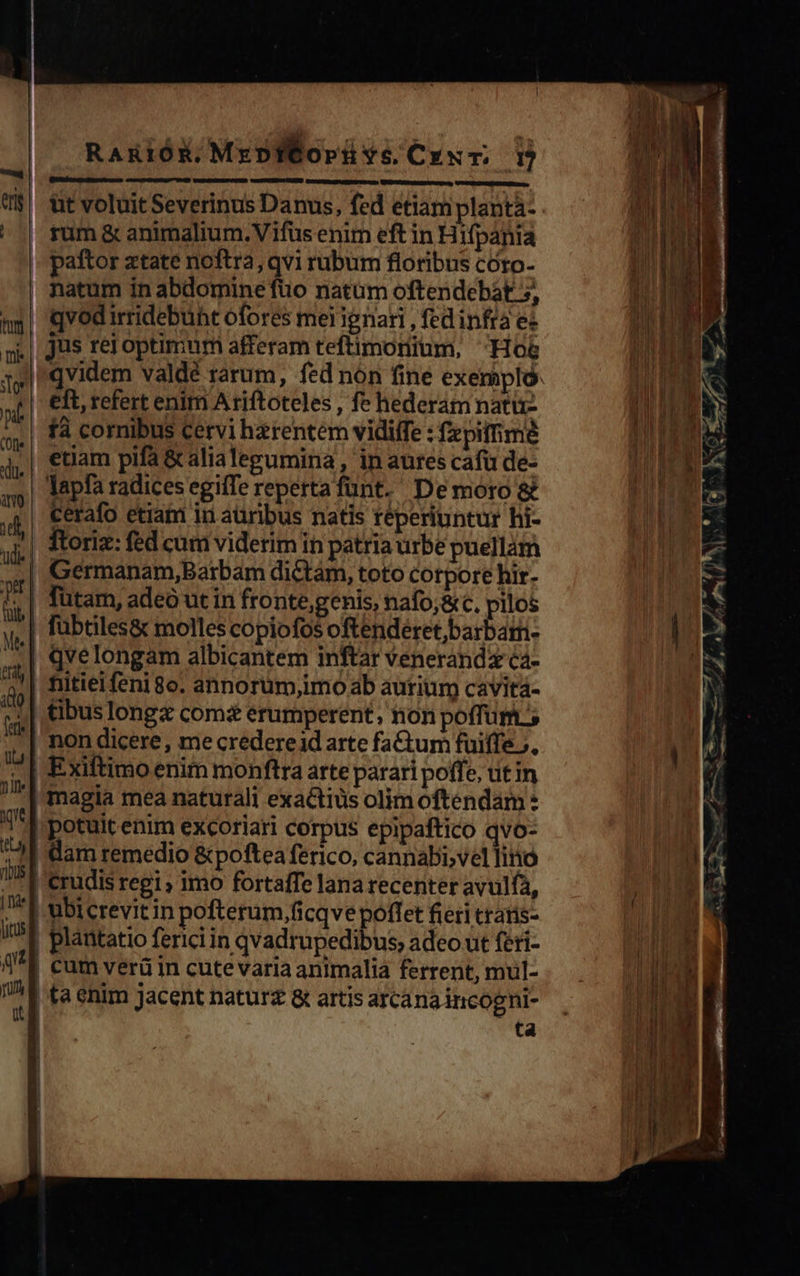 RARIOR. MEDICOPHYS. CENT. 17
ut voluit Severinus Danus, ſed etiam planta-
rum & animalium. Viſus enim eſt in Hiſpania
paſtor ætate noſtra, qvi rubum floribus coro-
natum in abdomine ſuo natum oſtendebat,
qvod irridebunt oſores mei ignari, ſed infra e-
jus rei optimum afferam teſtimonium. Hoc
qvidem valdè rarum, ſed non ſine exemplo
eſt, refert enim Ariſtoteles, ſe hederam natu-
râ cornibus cervi hærentem vidiſſe: ſæpiſſimè
etiam piſa & alia legumina, in aures caſu de-
lapſa radices egiſſe reperta ſunt. De moro &
ceraſo etiam in auribus natis reperiuntur hi-
ſtoriæ: ſed cum viderim in patria urbe puellam
Germanam, Barbam dictam, toto corpore hir-
ſutam, adeò ut in fronte, genis, naſo, &c. pilos
ſubtiles & molles copioſos oſtenderet, barbam-
qve longam albicantem inſtar venerandæ ca-
nitiei ſeni 80. annorum, imo ab aurium cavita-
tibus longæ comæ erumperent, non poſſum
non dicere, me credere id arte factum fuiſſe.
Exiſtimo enim monſtra arte parari poſſe, ut in
magia mea naturali exactiùs olim oſtendam:
potuit enim excoriari corpus epipaſtico qvo-
dam remedio & poſtea ſerico, cannabi, vel lino
crudis regi, imo fortaſſe lana recenter avulſa,
ubi crevit in poſterum, ſicqve poſſet fieri trans-
plantatio ſerici in qvadrupedibus, adeo ut ſeri-
cum verû in cute varia animalia ferrent, mul-
ta enim jacent naturæ & artis arcana incogni-
ta